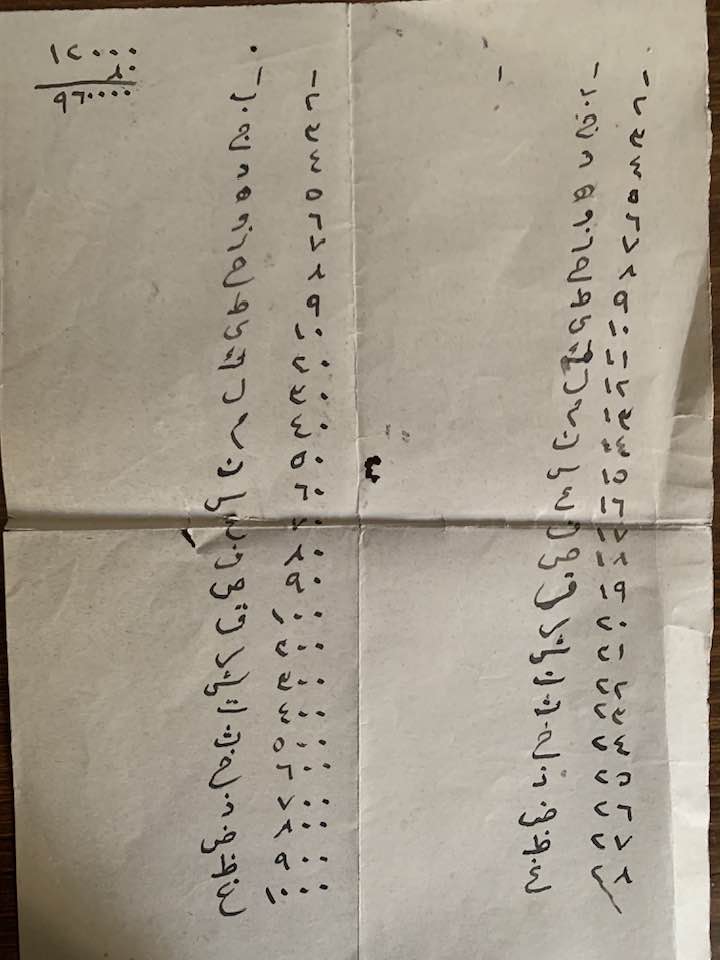 ١ ٢ ٣ ٤ ٥ ٦ ٧ ٨ ٩ ١٠ ١١ ١٢ ١٣ ١٤ ١٥ ١٦ ١٧ ١٨ ١٩ ٢٠ ٢١ ٢٢ ٢٣ ٢٤ ٢٥ ٢٦ ٢٧ ٢٨
ا ب ج د ه و ز ح ط ي ك ل م ن س ع ف ص ق ر ش ت ث خ ذ ض ظ غ
١ ٢ ٣ ٤ ٥ ٦ ٧ ٨ ٩ ١٠ ٢٠ ٣٠ ٤٠ ٥٠ ٦٠ ٧٠ ٨٠ ٩٠ ١٠٠ ٢٠٠ ٣٠٠ ٤٠٠ ٥٠٠ ٦٠٠ ٧٠٠ ٨٠٠ ٩٠٠ ١٠٠٠
ا ب ج د ه و ز ح ط ي ك ل م ن س ع ف ص ق ر ش ت ث خ ذ ض ظ غ
١٢٠٠٠
٨٠
٩٦٠٠٠٠